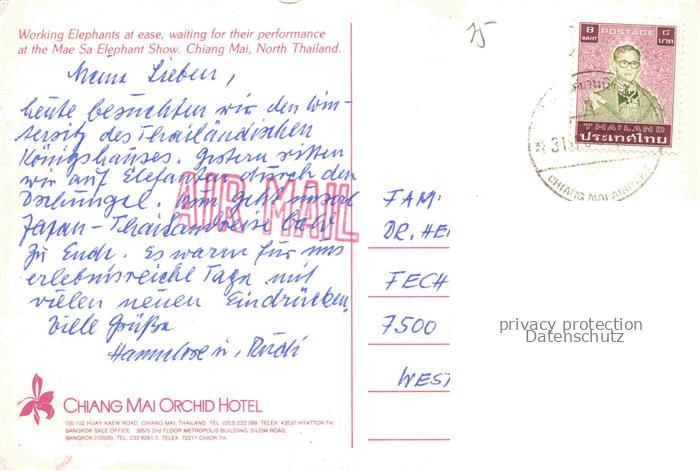 Working Elephants at ease, waiting for their performance
at the Mae Sa Elephant Show. Chiang Mai, North Thailand.
Meine Lieben,
heute besuchten wir den Win-
tersitz des Thailändischen
Königshauses. Gestern ritten
wir auf Elefanten durch den
Dschungel. Nun geht unsere
Japan-Thailandreise bald
zu Ende. Es waren für uns
erlebnisreiche Tage mit
vielen neuen Eindrücken.
Viele Grüße
Hannelore u. Rudi
AIR MAIL
CHIANG MAI ORCHID HOTEL
100-102 HUAY KAEW ROAD, CHIANG MAI, THAILAND. TEL. (053) 222 099, TELEX 43537 HYATTOR TH
BANGKOK SALE OFFICE 395/5 2nd FLOOR METROPOLIS BUILDING, SILOM ROAD,
BANGKOK (10500). TEL. 233 8261-3, TELEX 72211 CHIOR TH
8
BAHT
POSTAGE
๘
บาท
THAILAND
ประเทศไทย
31
CHIANG MAI AIRPORT
FAM.
DR. HE
FECH
7500
WEST
privacy protection
Datenschutz